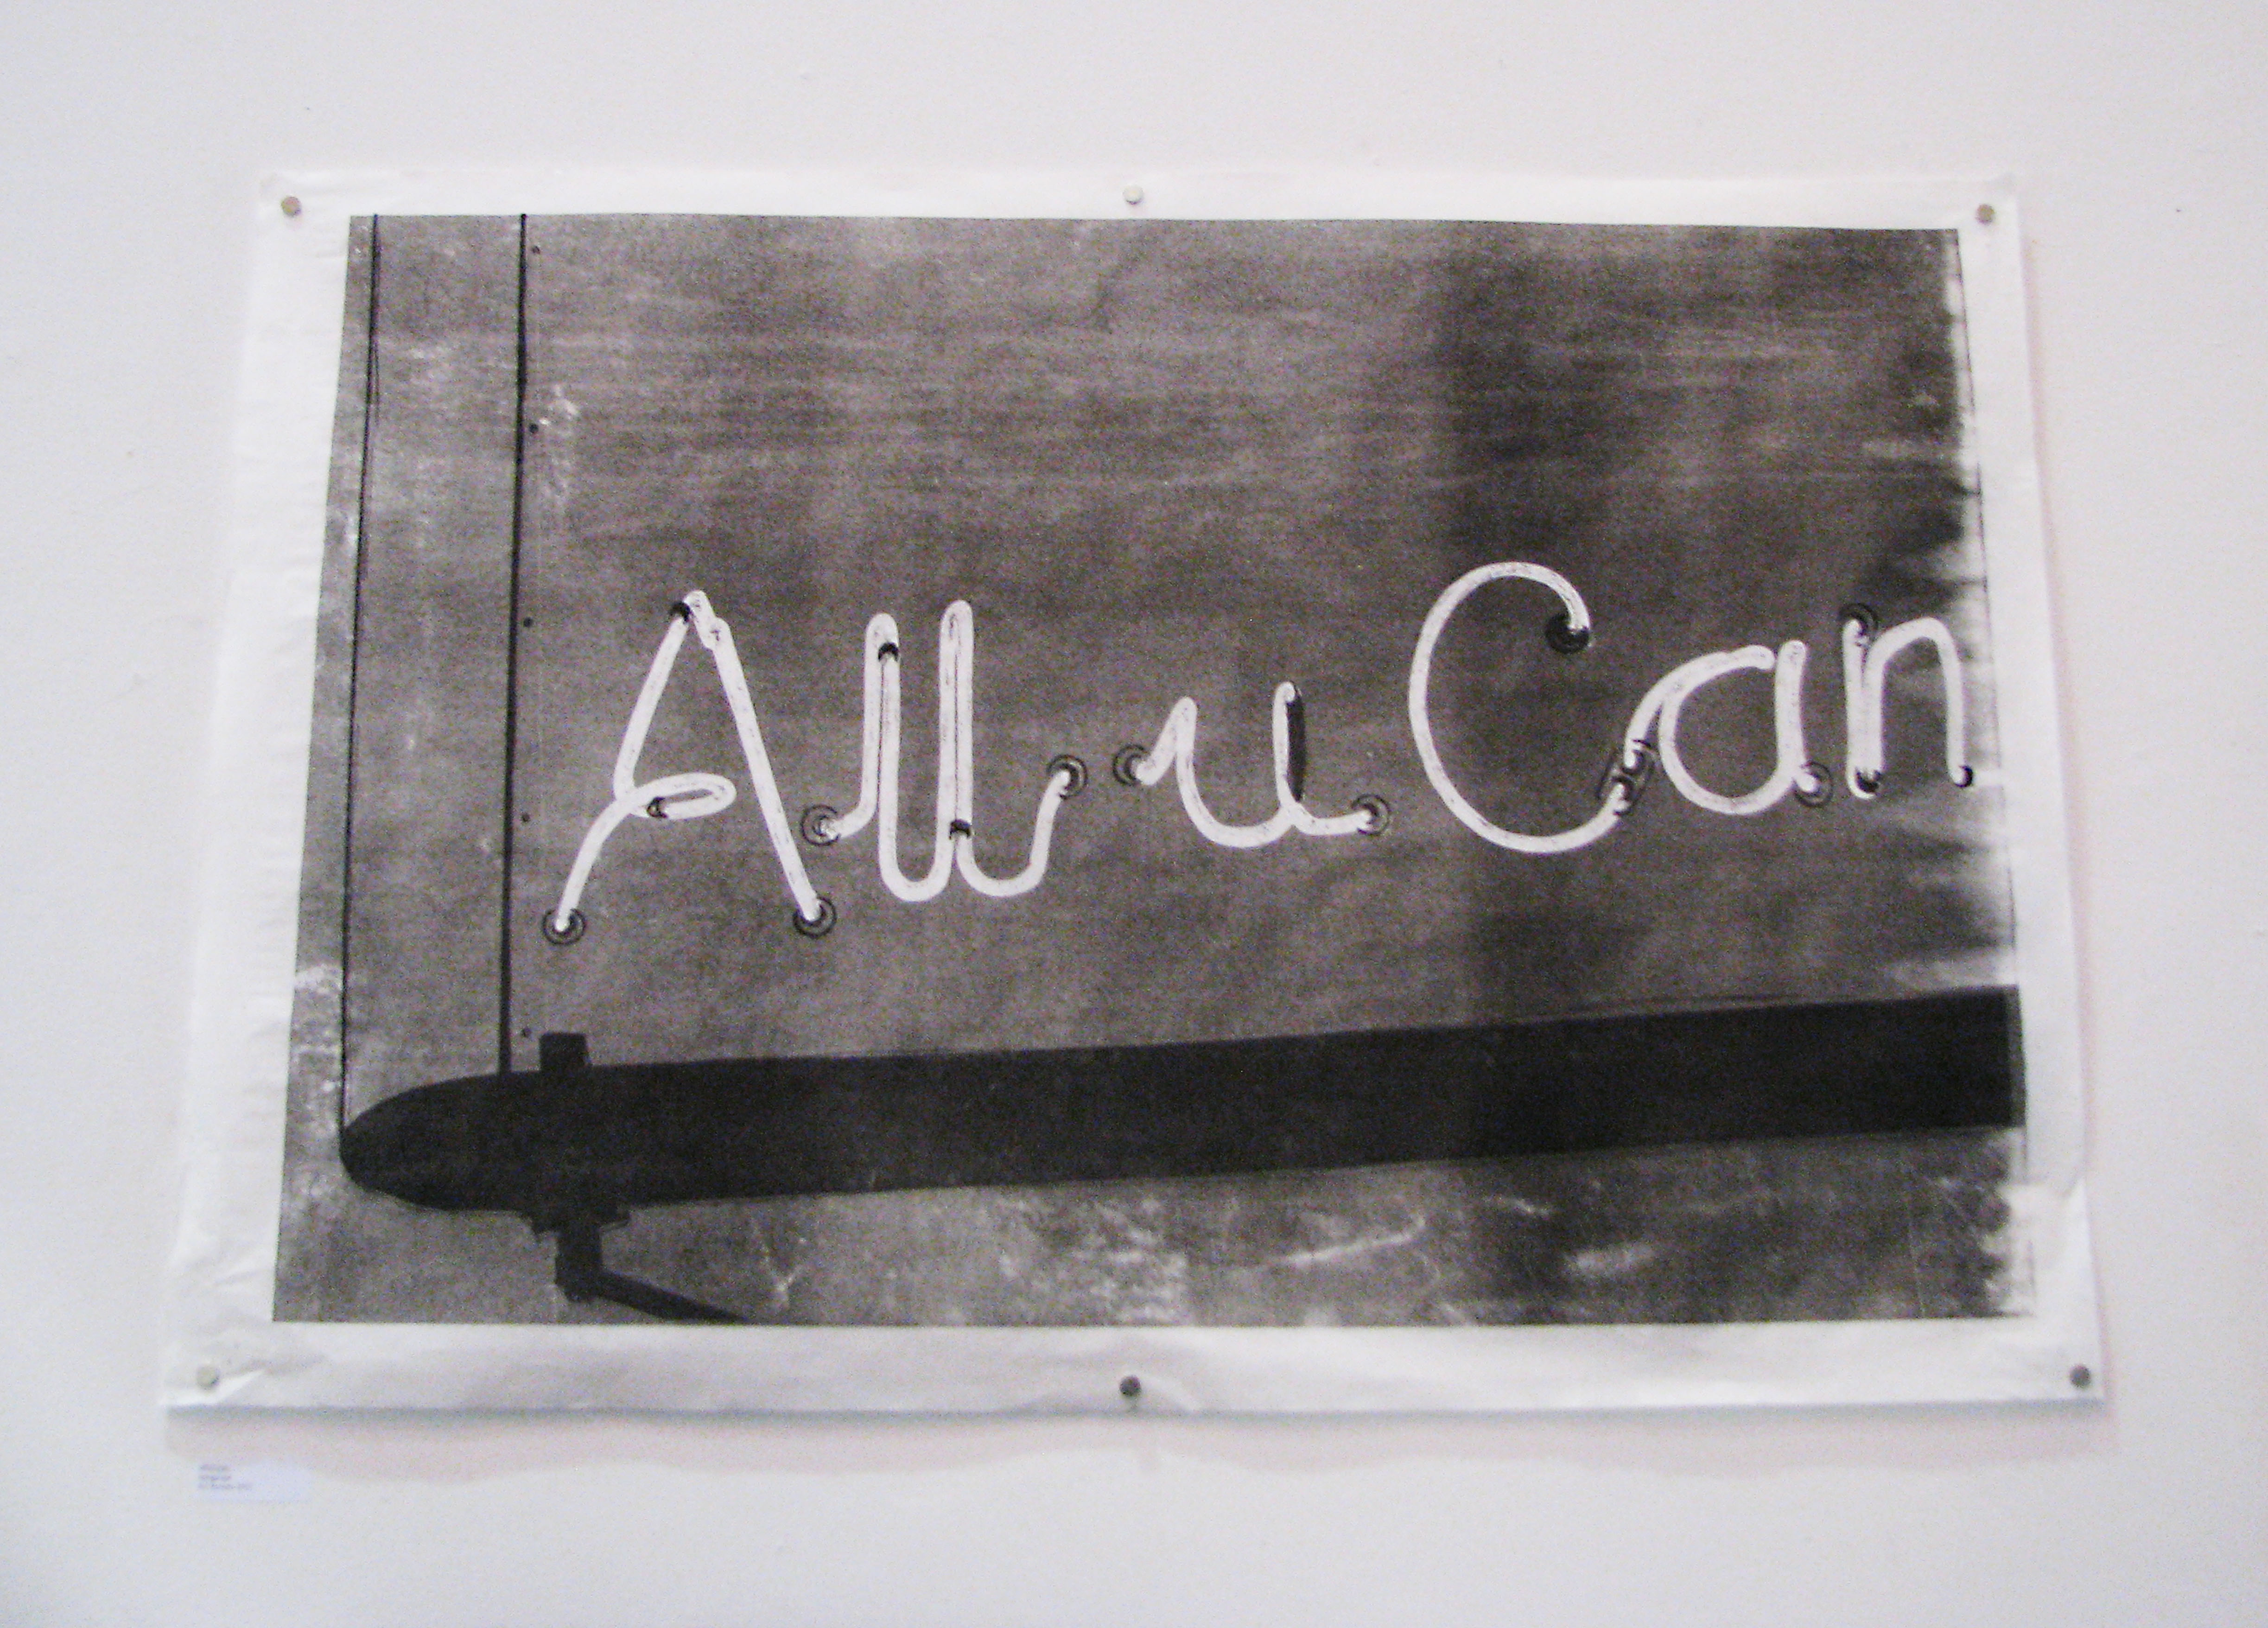 All u Can